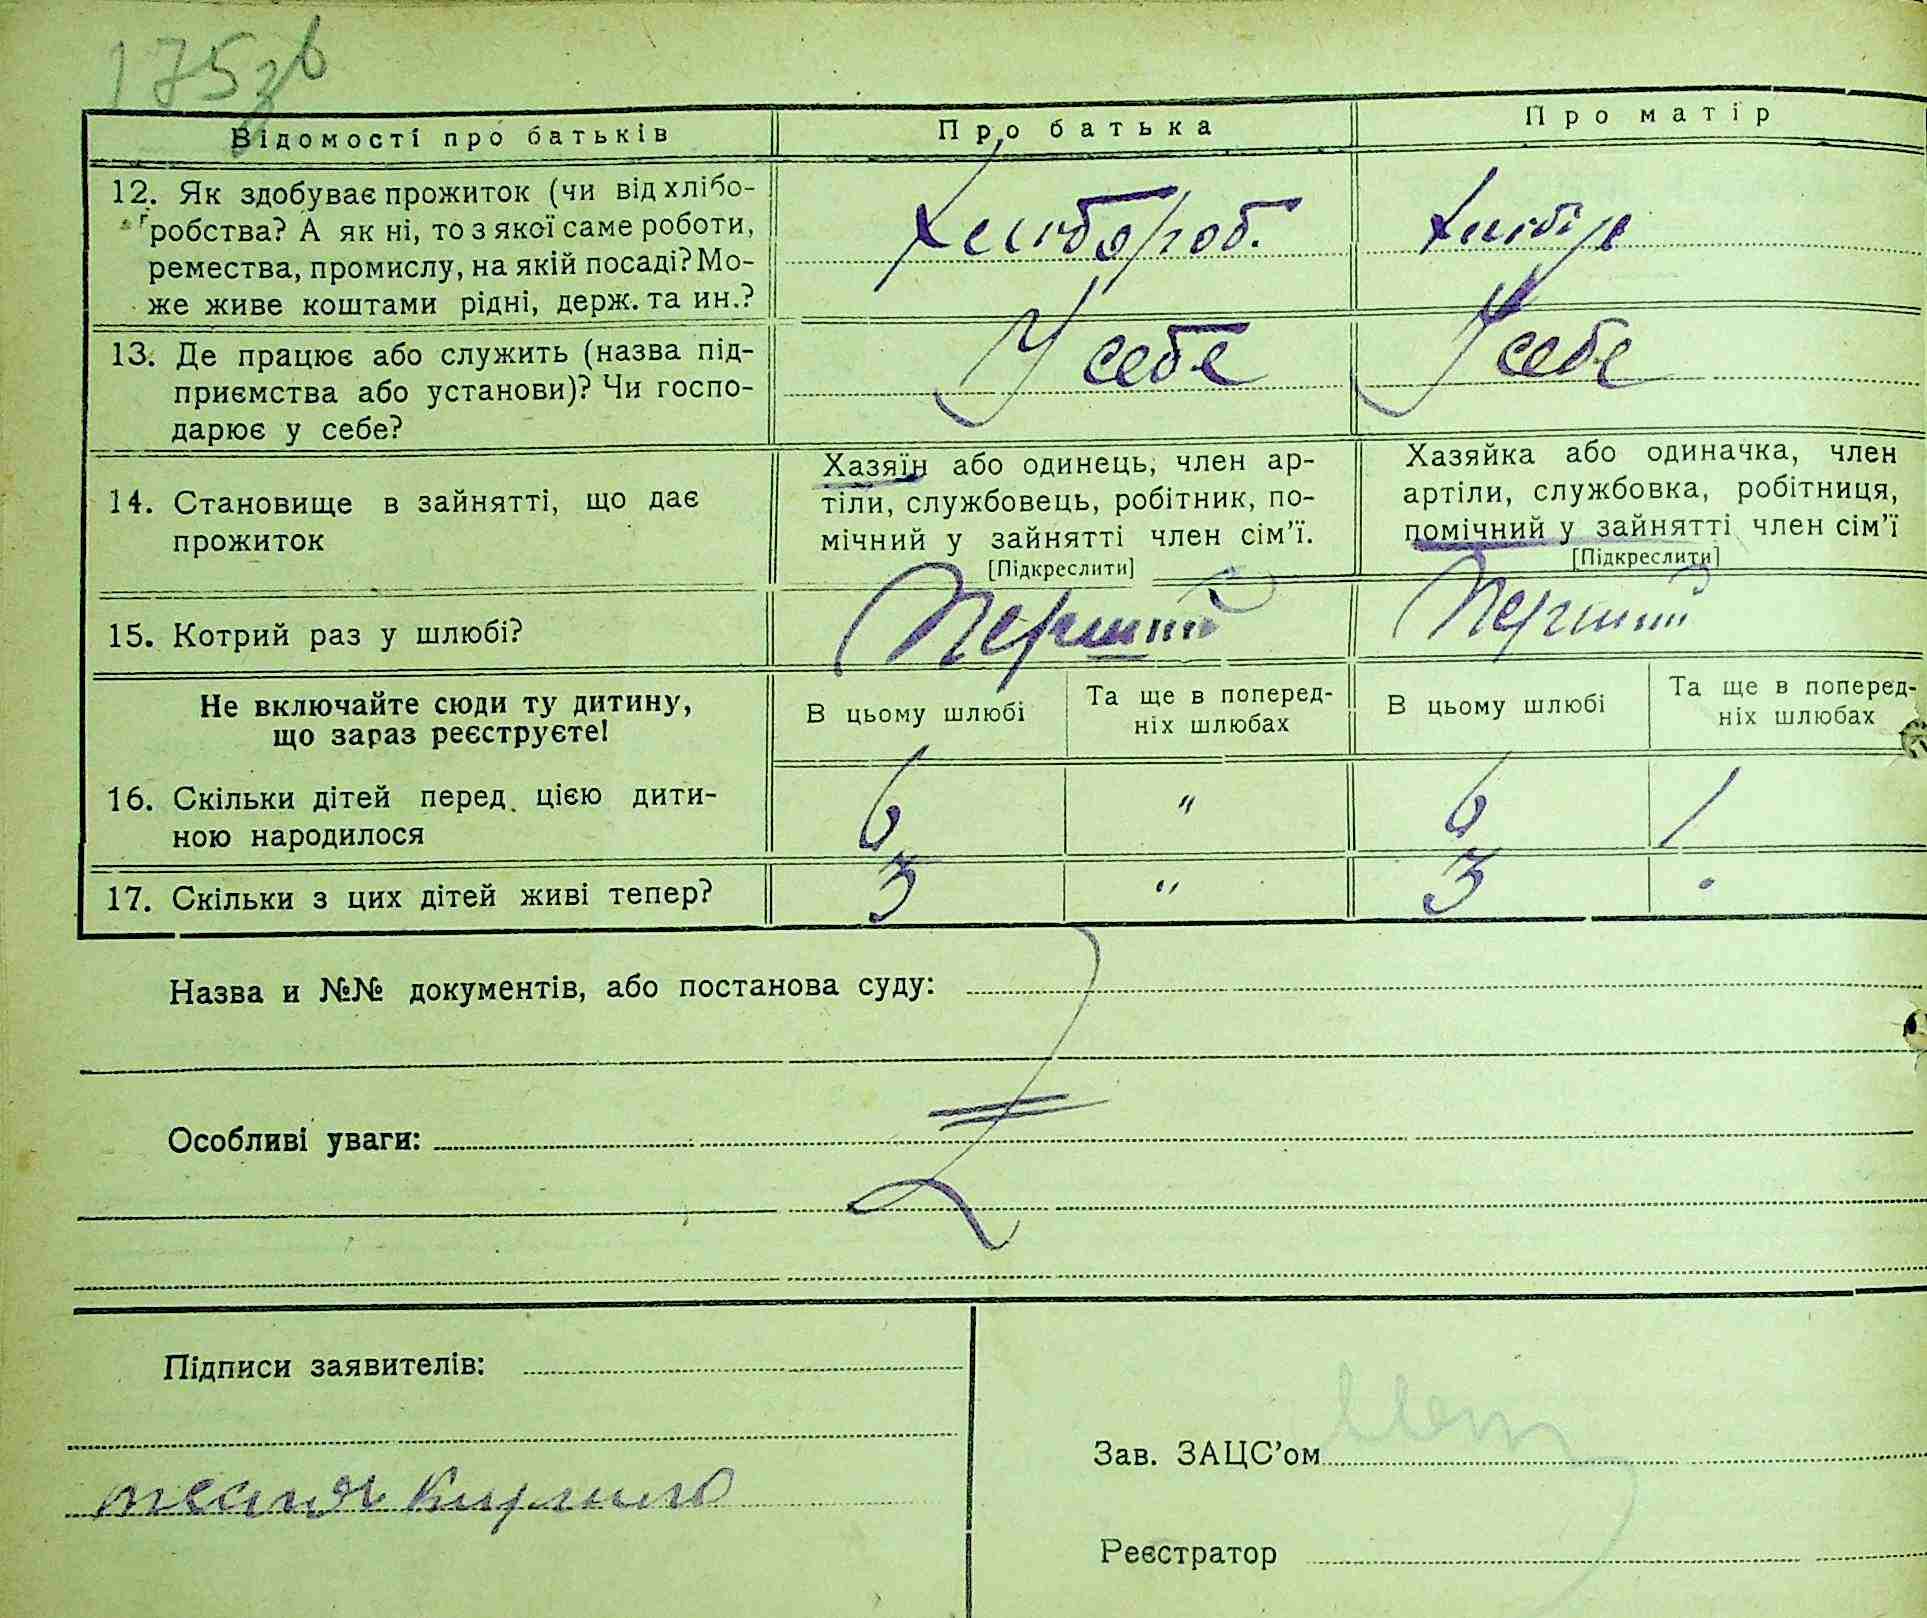 175зв
Відомості про батьків Про батька Про матір
12. Як здобуває прожиток (чи від хлібо-
робства? А як ні, то з якої саме роботи,
ремества, промислу, на якій посаді? Мо-
же живе коштами рідні, держ. та ин.?
Хлибороб.
13. Де працює або служить (назва під-
приємства або установи)? Чи госпо-
дарює у себе?
У себе У себе
14. Становище в зайнятті, що дає
прожиток
Хазяїн або одинець, член ар-
тіли, службовець, робітник, по-
мічний у зайнятті член сім'ї.
[Підкреслити]
Хазяйка або одиначка, член
артіли, службовка, робітниця,
помічний у зайнятті член сім'ї
[Підкреслити]
15. Котрий раз у шлюбі? Перший Перший
Не включайте сюди ту дитину,
що зараз реєструєте!
В цьому шлюбі
Та ще в поперед-
ніх шлюбах
В цьому шлюбі
Та ще в поперед-
ніх шлюбах
16. Скільки дітей перед цією дити-
ною народилося
6 " 6
17. Скільки з цих дітей живі тепер? 3 " 3
Назва и №№ документів, або постанова суду:
Особливі уваги:
Підписи заявителів:
Кирило
Зав. ЗАЦС'ом
Реєстратор